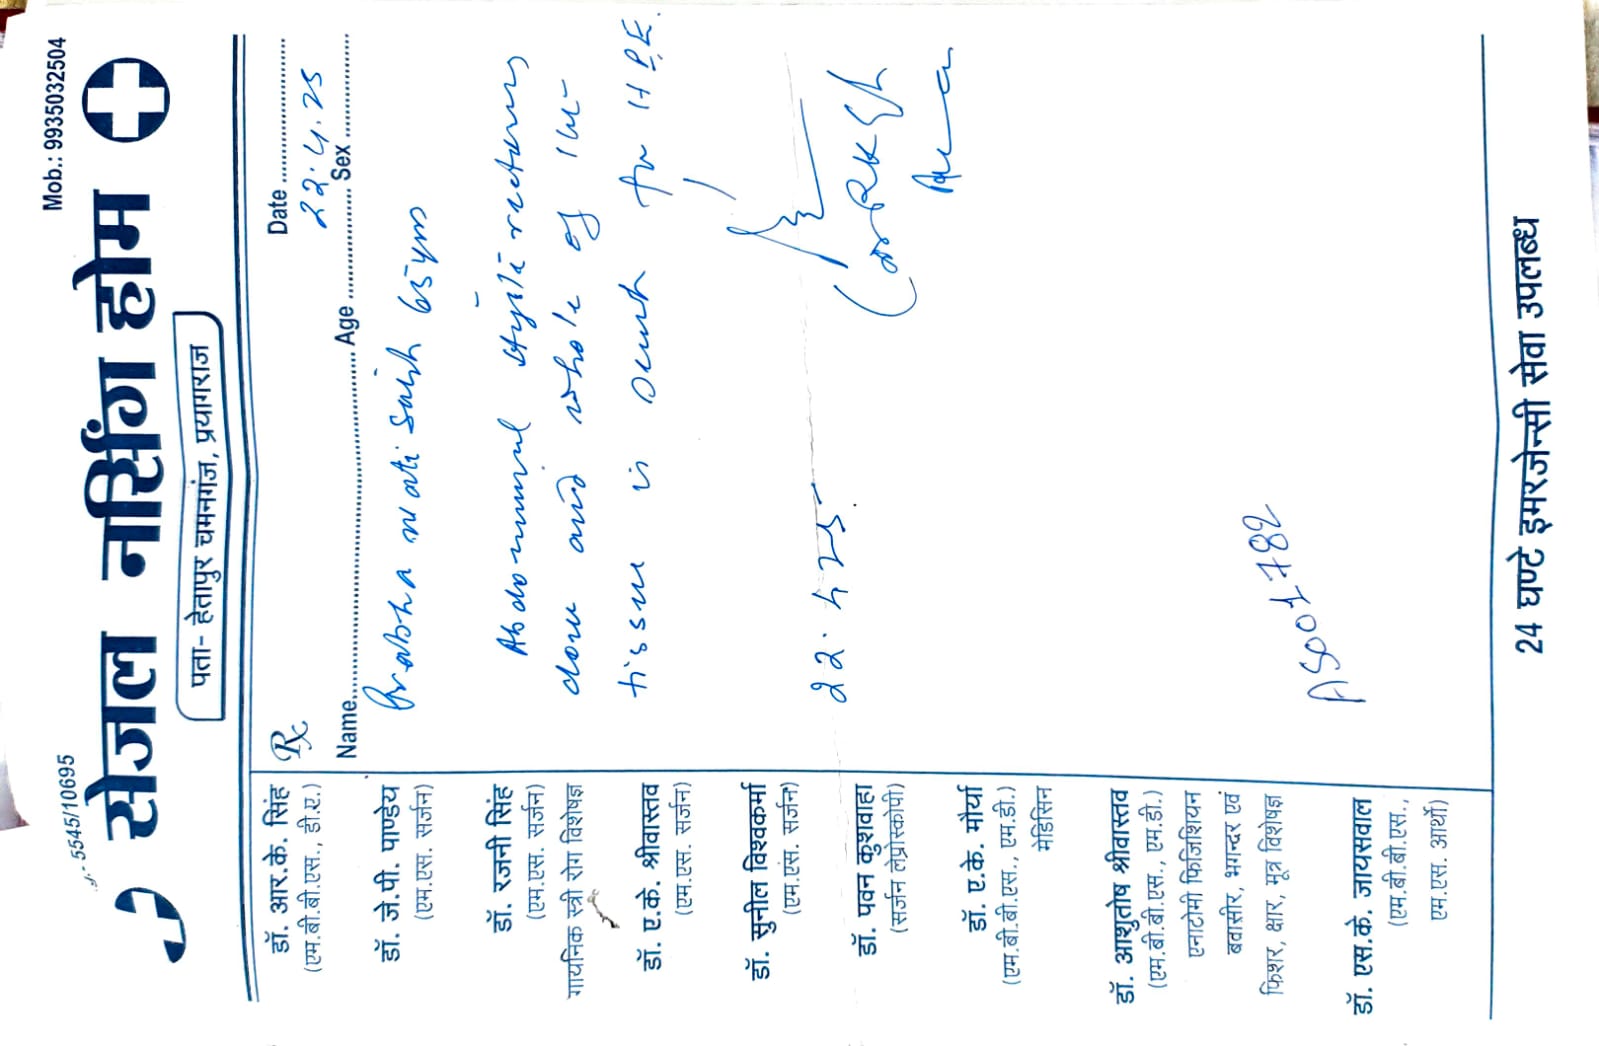 5545/10695
Mob.: 9935032504
सेजल नर्सिंग होम
पता- हेतापुर चमनगंज, प्रयागराज
डॉ. आर.के. सिंह
(एम.बी.बी.एस., डी.एर.)
डॉ. जे.पी. पाण्डेय
(एम.एस. सर्जन)
डॉ. रजनी सिंह
(एम.एस. सर्जन)
गायनिक स्त्री रोग विशेषज्ञ
डॉ. ए.के. श्रीवास्तव
(एम.एस. सर्जन)
डॉ. सुनील विश्वकर्मा
(एम.एस. सर्जन)
डॉ. पवन कुशवाहा
(सर्जन लेप्रोस्कोपी)
डॉ. ए.के. मौर्या
(एम.बी.बी.एस., एम.डी.)
मेडिसिन
डॉ. आशुतोष श्रीवास्तव
(एम.बी.बी.एस., एम.डी.)
एनाटोमी फिजिशियन
बवासीर, भगन्दर एवं
फिशर, क्षार, मूत्र विशेषज्ञ
डॉ. एस.के. जायसवाल
(एम.बी.बी.एस.,
एम.एस. आर्थो)
Rx
Date
22.4.25
Name Age Sex
Prabha wati Singh 65 yrs
Abdominal
done and whole of the
tissue is sent for H.P.E.
22.4.25
(Dr RK Singh
AS001782
24 घण्टे इमरजेन्सी सेवा उपलब्ध